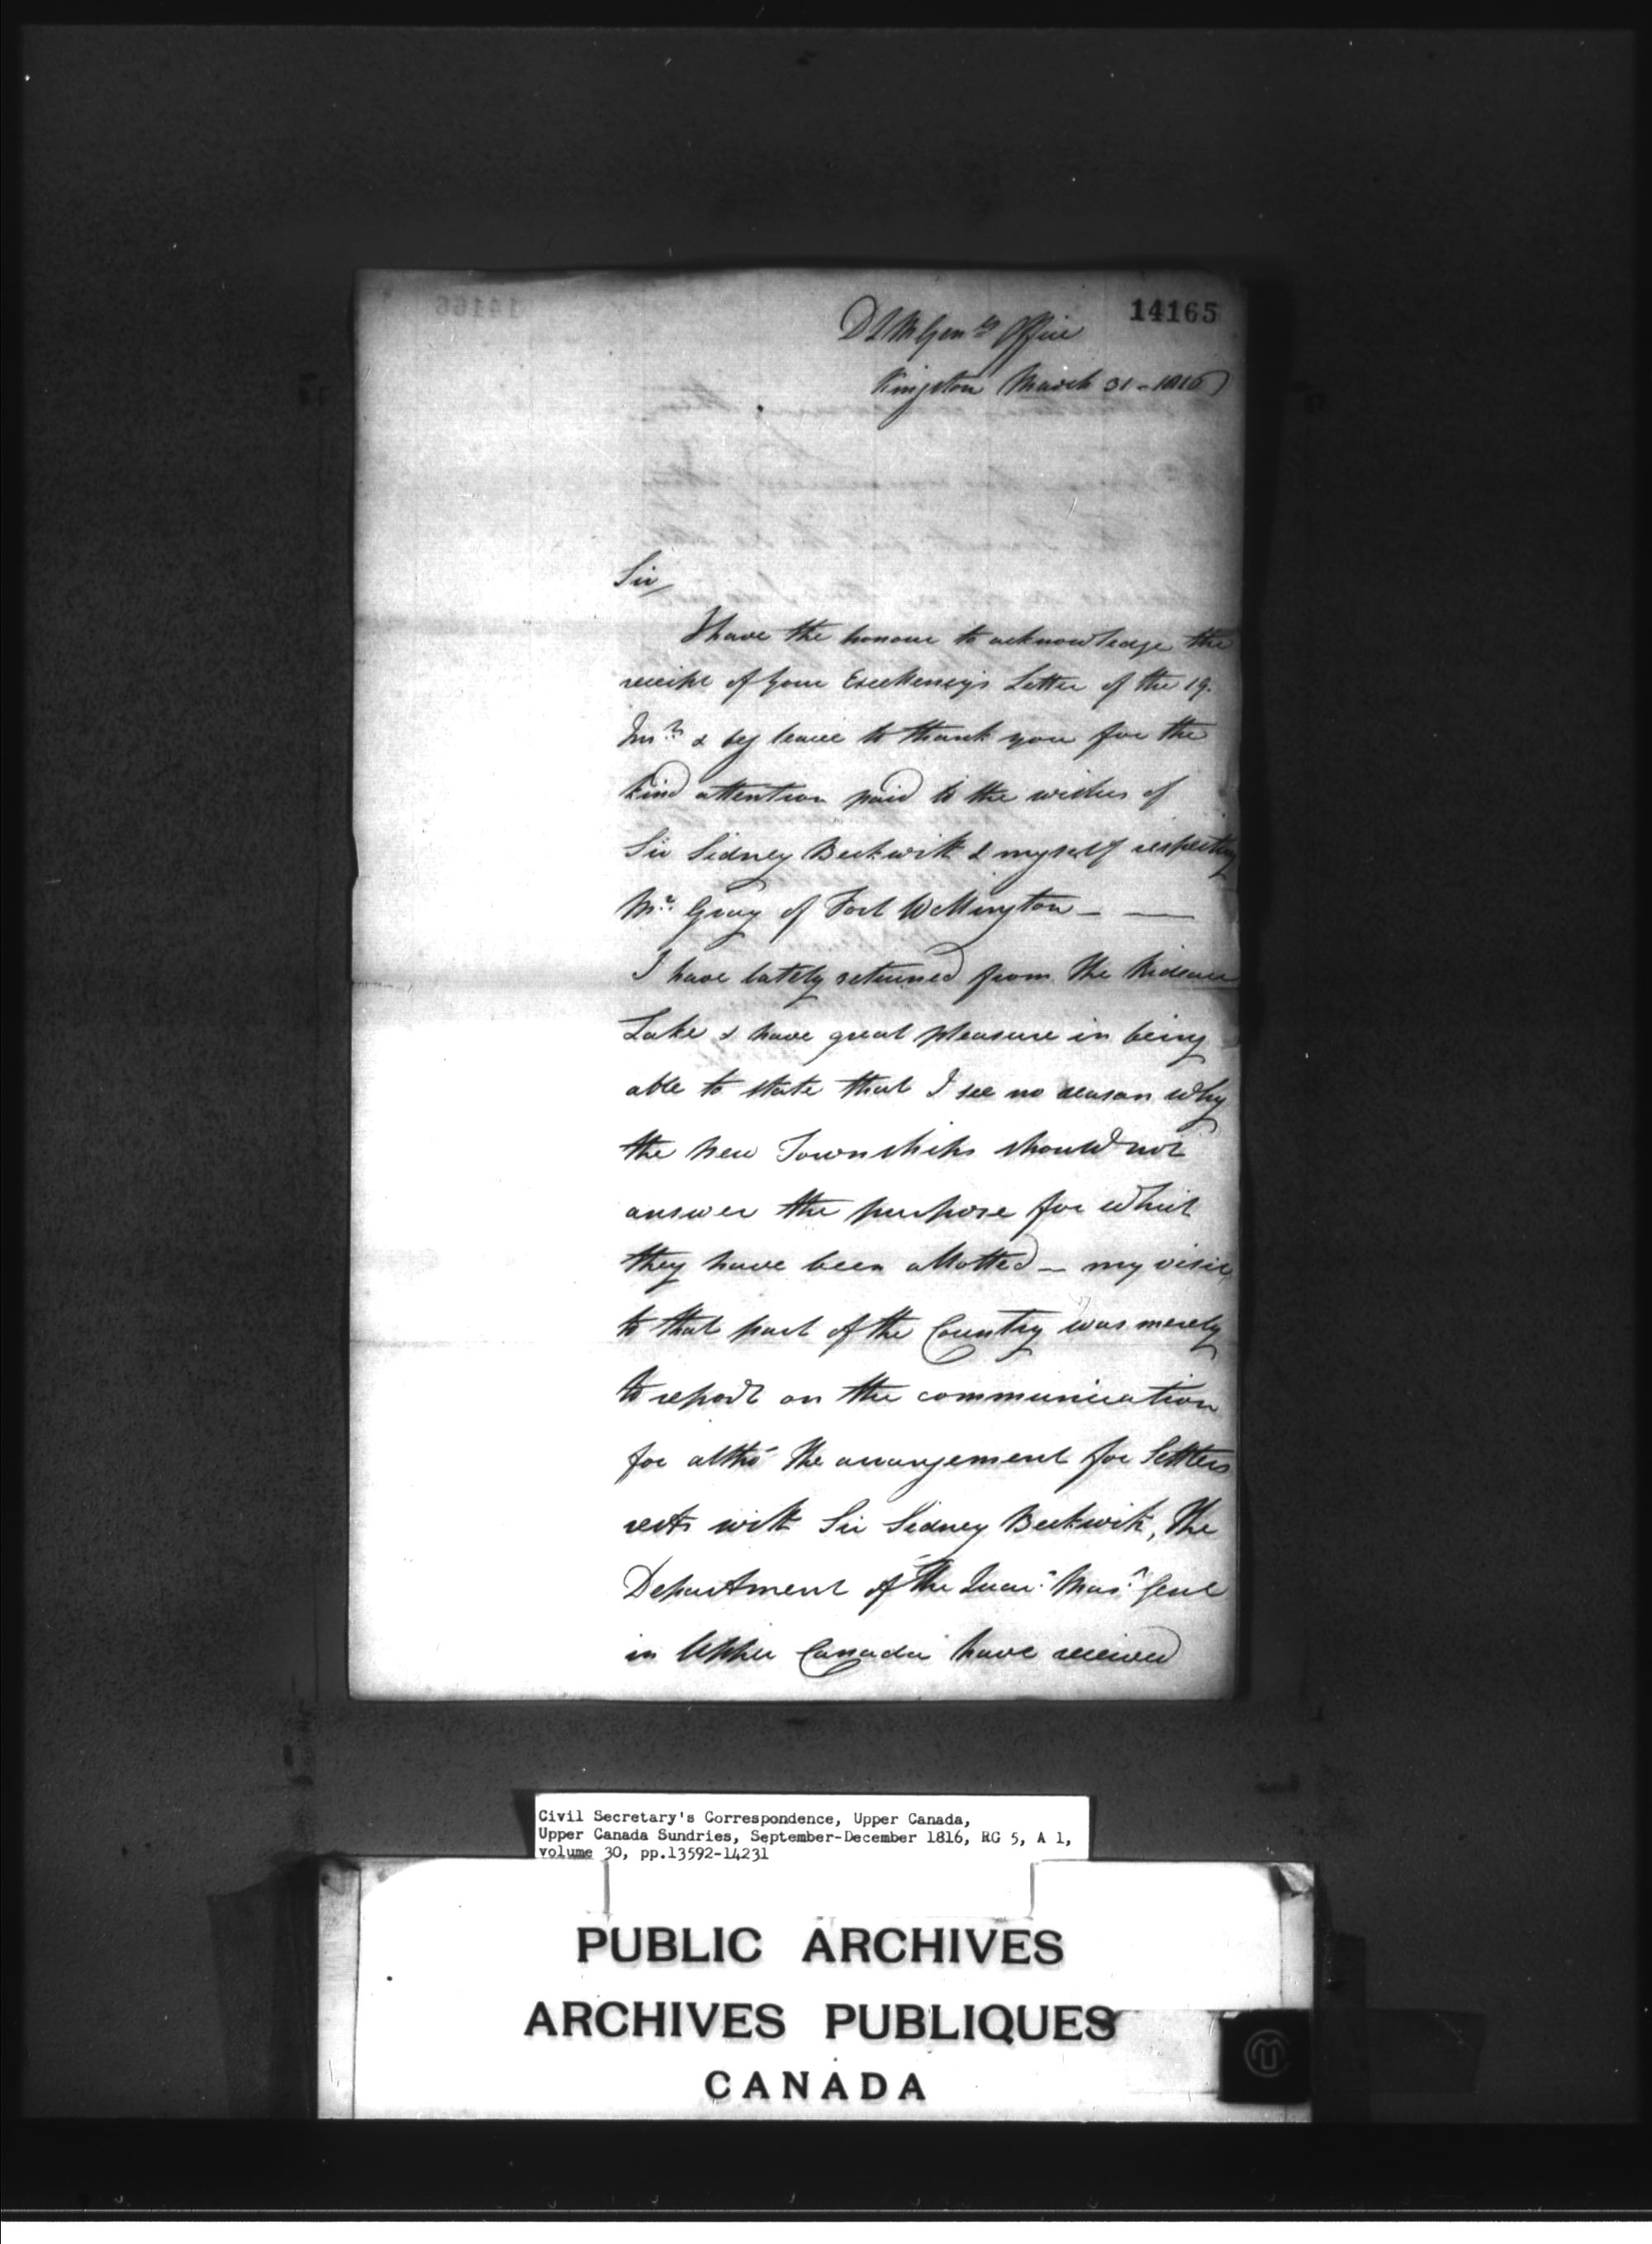 14165
D Q M Gen.ls Office
Kingston March 31 - 1816
Sir,
I have the honour to acknowledge the
receipt of Your Excellency's Letter of the 19.
Ins.t & beg leave to thank you for the
kind attention paid to the wishes of
Sir Sidney Beckwith & myself respecting
Mr. Gray of Fort Wellington - —
I have lately returned from the Rideau
Lake & have great pleasure in being
able to state that I see no reason why
the new Townships should not
answer the purpose for which
they have been allotted - my visit
to that part of the Country was merely
to report on the communication
for altho' the arrangement for Settlers
rests with Sir Sidney Beckwith, the
Department of the Quar. Mas. Genl
in Upper Canada have received
Civil Secretary's Correspondence, Upper Canada,
Upper Canada Sundries, September-December 1816, RG 5, A 1,
volume 30, pp.13592-14231
PUBLIC ARCHIVES
ARCHIVES PUBLIQUES
CANADA